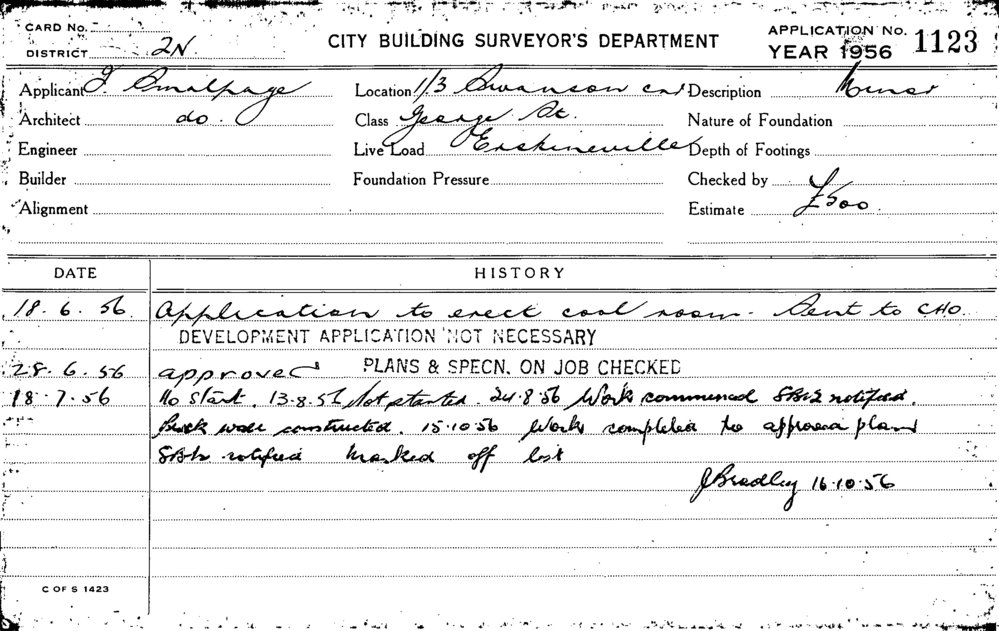 CARD No.
DISTRICT 2N
CITY BUILDING SURVEYOR'S DEPARTMENT
APPLICATION No. 1123
YEAR 1956
Applicant Smalpage Location 1/3 Swanson cnr Description Minor
Architect do. Class George St. Nature of Foundation
Engineer Live Load Erskineville Depth of Footings
Builder Foundation Pressure Checked by
Alignment Estimate £500
DATE HISTORY
18.6.56 Application to erect cool room. Sent to CHO
DEVELOPMENT APPLICATION NOT NECESSARY
28.6.56 approved PLANS & SPECN. ON JOB CHECKED
18.7.56 No start. 13.8.56 Not started. 24.8.56 Work commenced notified.
Brick wall constructed. 15.10.56 Work completed to approved plans
notified Marked off list
J Bradley 16.10.56
C OF S 1423